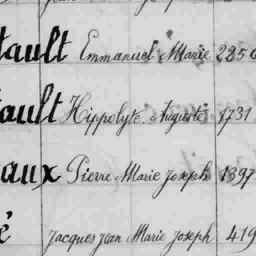 tault Emmanuel Marie 2250
ault Hippolyte Auguste 1731
aux Pierre Marie Joseph 1397
é Jacques Jean Marie Joseph 419